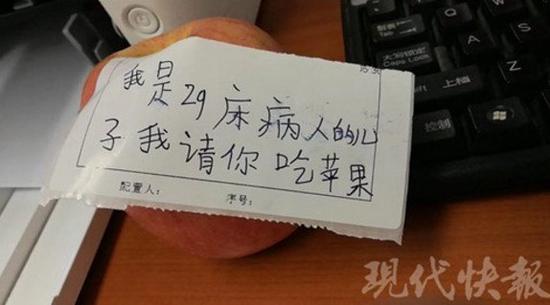 我是29床病人的儿
子我请你吃苹果
配置人:
序号:
大写锁定
Caps Lock
上档
控制
现代快報